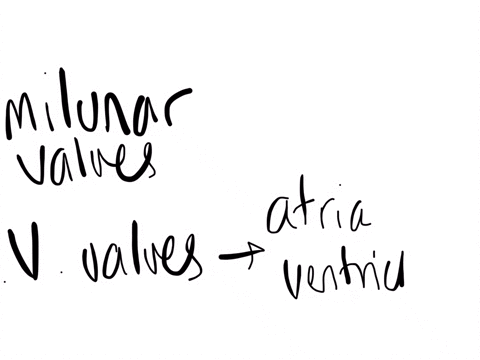 milunar
valves
V. valves → atria
ventricl